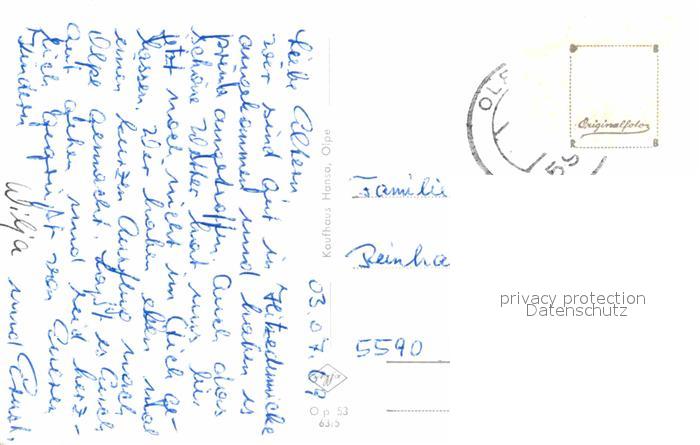 03.07.69
Liebe Eltern
wir sind gut in Hitzedumicke
angekommen und haben es
prima angetroffen. Auch das
schöne Wetter hat uns bis
jetzt noch nicht im Stich ge-
lassen. Wir haben eben mal
einen kurzen Ausflug nach
Olpe gemacht. Laßt es Euch
gut gehen und seid herz-
lich gegrüßt von Eueren
Kindern
Wilja und Ernst.
Kaufhaus Hansa, Olpe
Op 53
63/5
Familie
Reinha
5590
OLPE
Originalfoto
privacy protection
Datenschutz